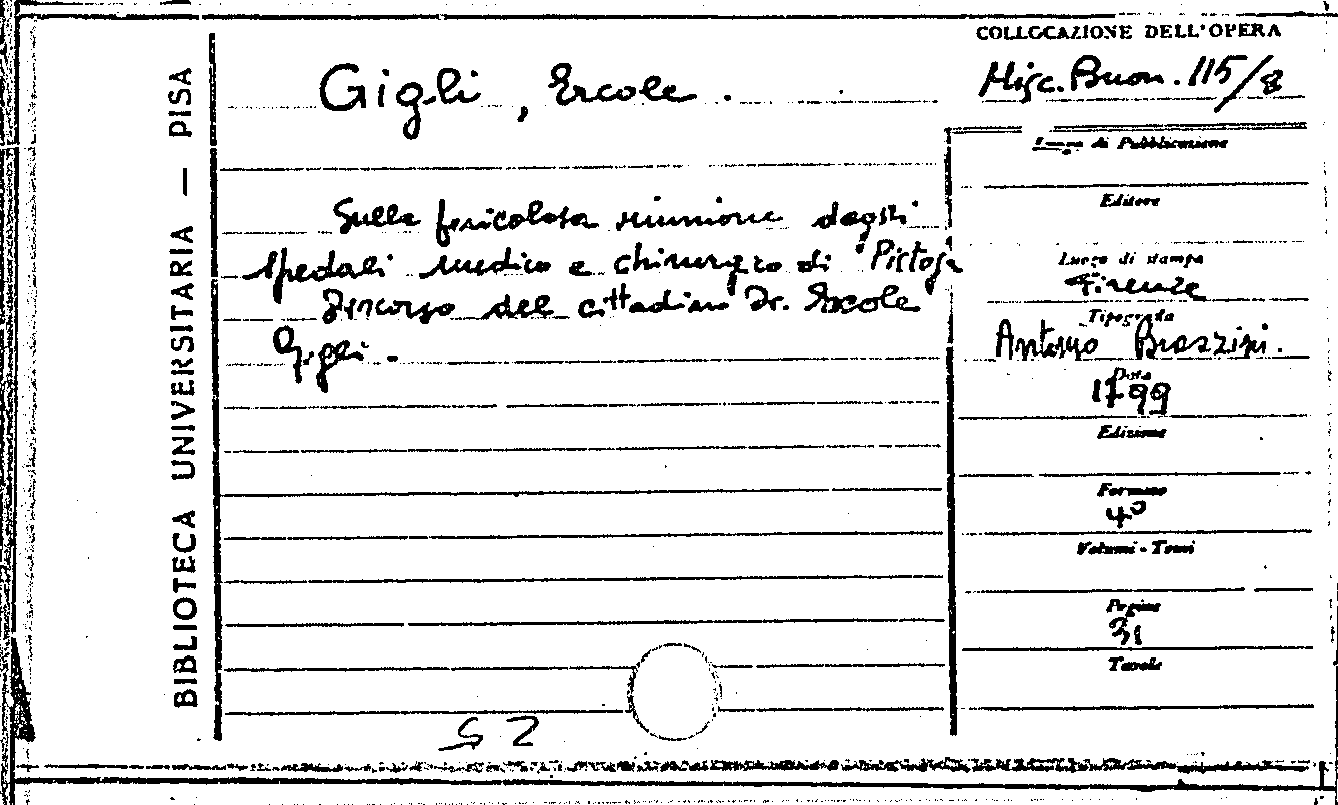 BIBLIOTECA UNIVERSITARIA — PISA
Gigli, Ercole.
Sulla pericolosa riunione degli
spedali medico e chirurgico di Pistoja
Discorso del cittadino Dr. Ercole
Gigli.
COLLOCAZIONE DELL'OPERA
Misc. Buon. 115/8
Luogo di Pubblicazione
Editore
Luogo di stampa
Firenze
Tipografia
Antonio Brazzini.
Data
1799
Edizione
Formato
4º
Volumi - Tomi
Pagine
31
Tavole